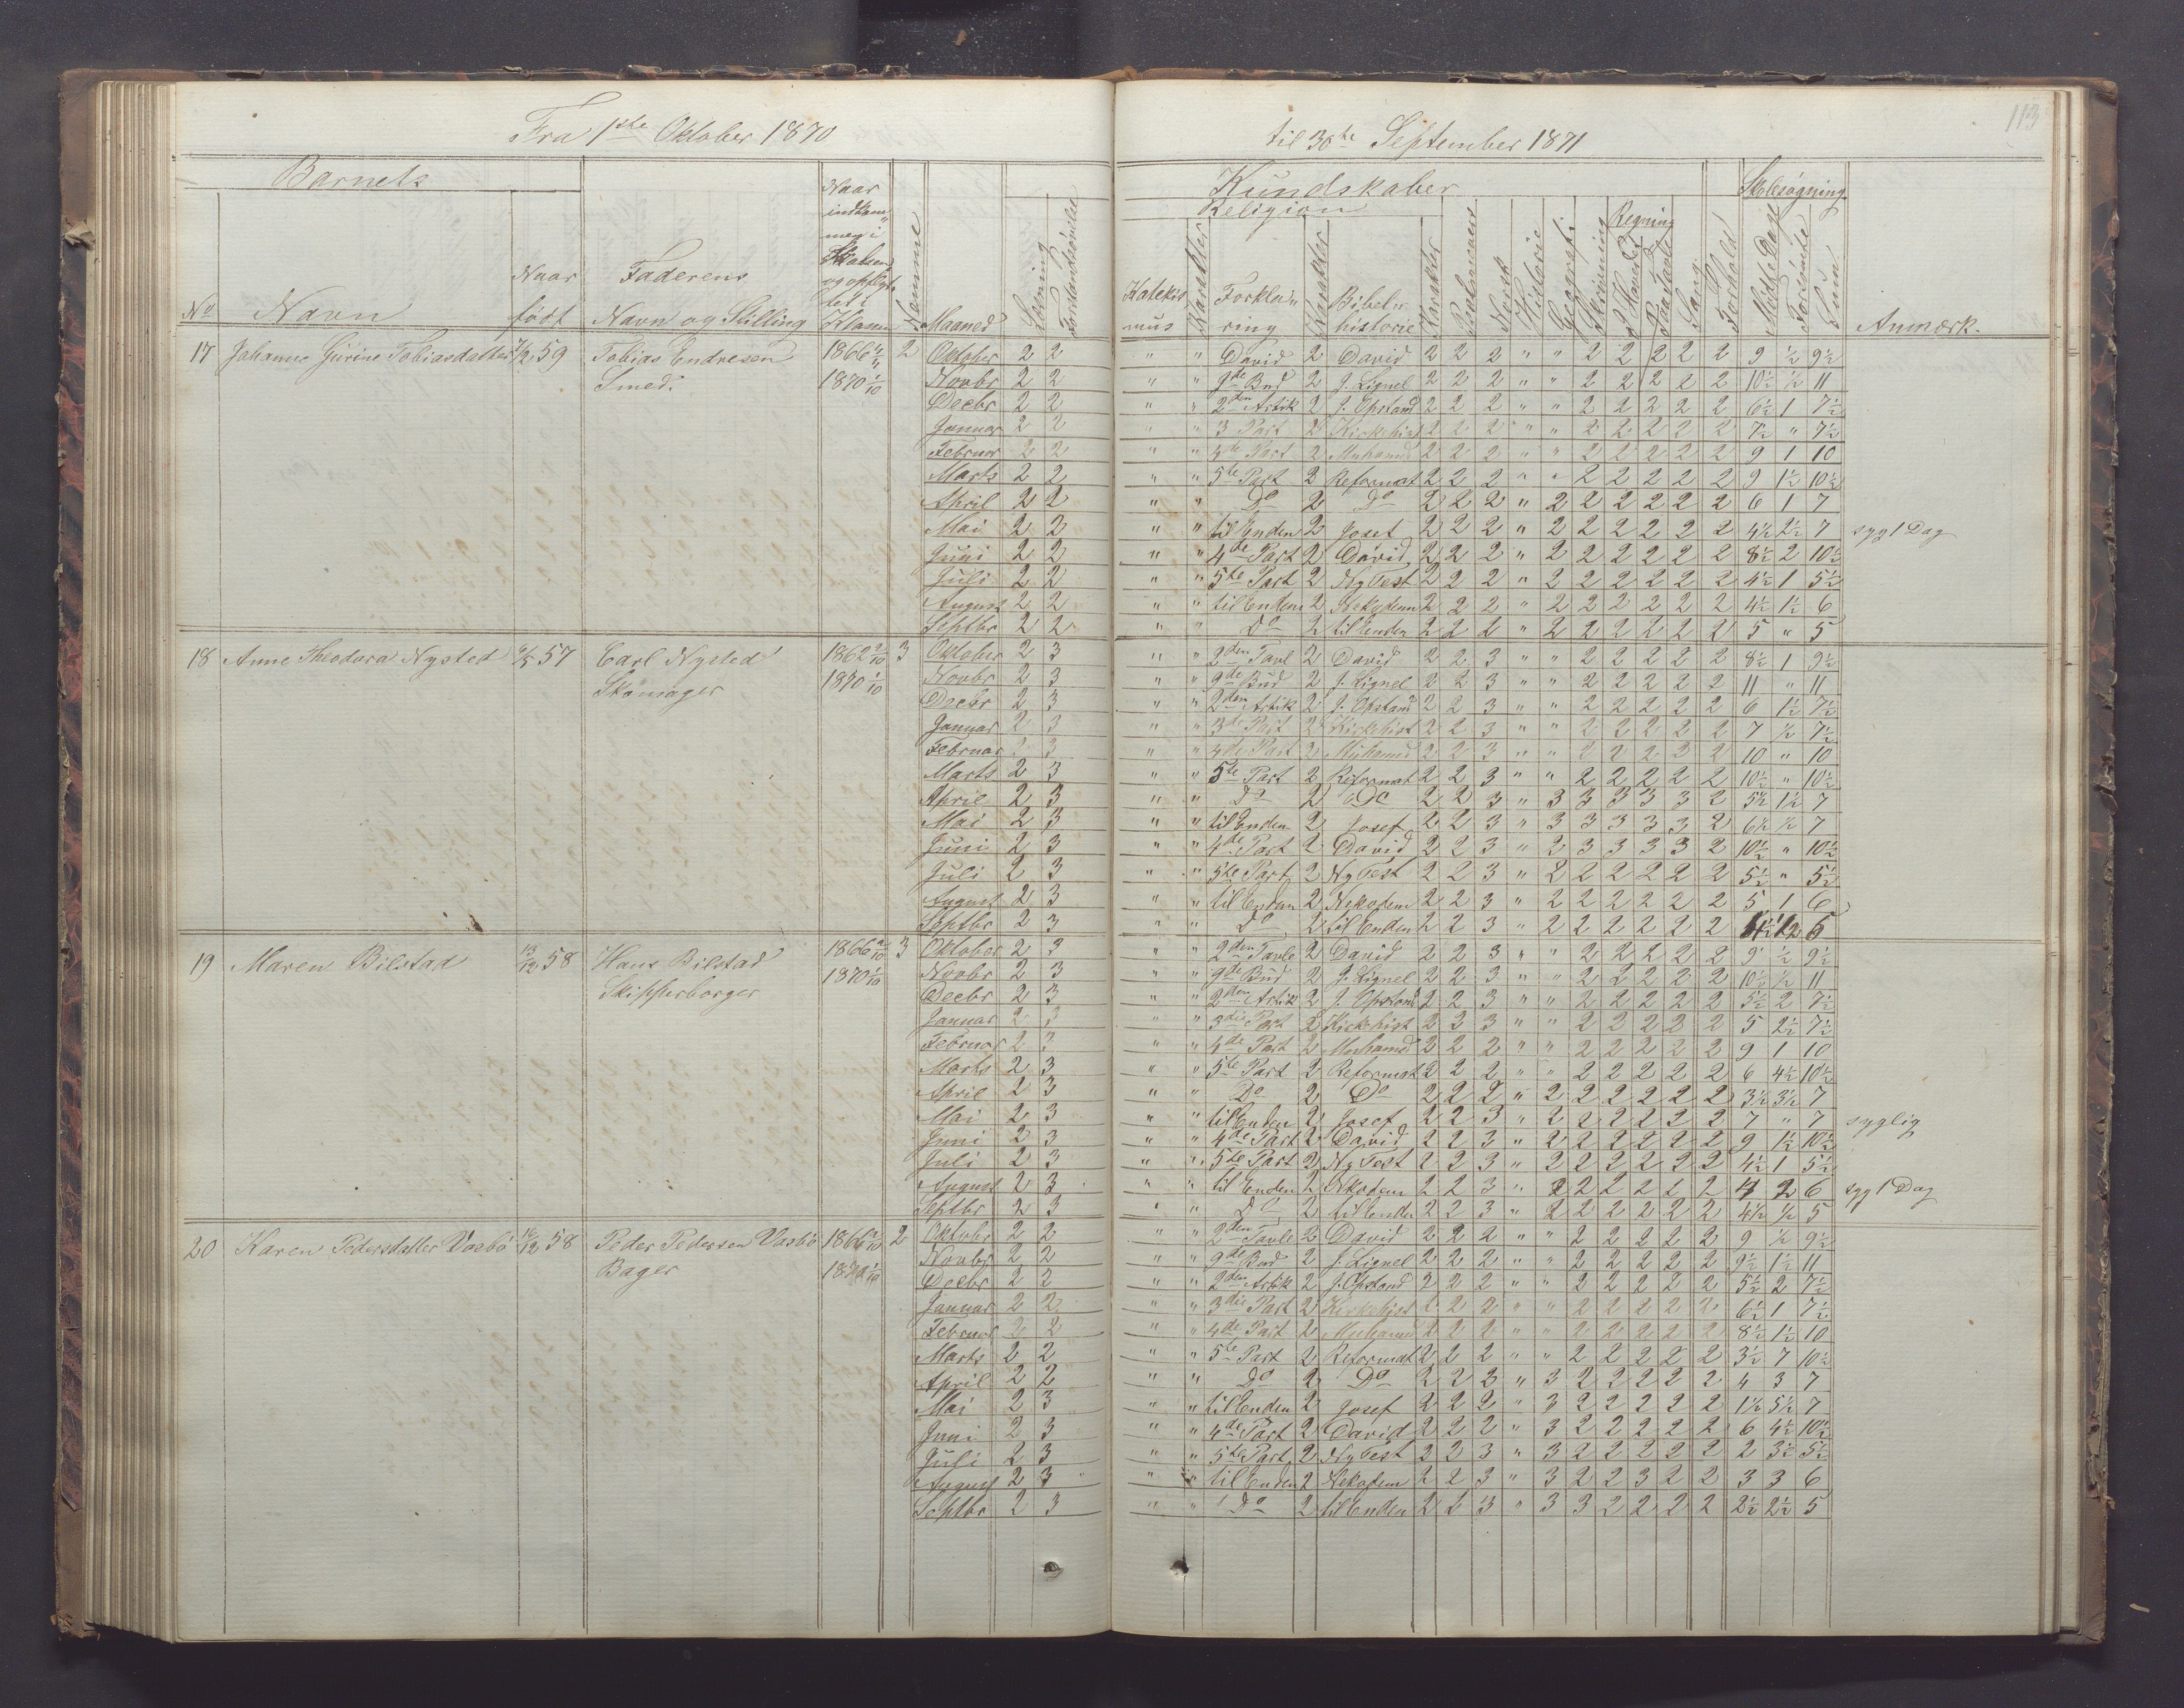 113
Fra 1ste Oktober 1870 til 30te September 1871
Barnets Kundskaber Skolesøgning
Religion Regning
No Navn Naar født Faderens Navn og Stilling Maaned Læsning Katekismus Karakter Forklaring Karakter Bibelhistorie Karakter Norsk Historie Geografi Skrivning Sang Forhold Mødte Dage Forsømte Sum Anmærk.
17 Johanne Gurine Tobiasdatter 59 Tobias Endresen 1866 2 Oktober 2 2 " " David 2 David 2 2 2 " " 2 2 2 2 2 9 ½ 9½
Smed. 1870 1/10 Novbr 2 2 " " 9de Bud 2 J. Lignel 2 2 2 " " 2 2 2 2 2 10½ ½ 11
Decbr 2 2 " " 2den Artik 2 J. Opstand 2 2 2 " " 2 2 2 2 2 6½ 1 7½
Januar 2 2 " " 3 Part 2 Kirkehist 2 2 2 " " 2 2 2 2 2 7½ " 7½
Februar 2 2 " " 4de Part 2 Muhamed 2 2 2 " " 2 2 2 2 2 9 1 10
Marts 2 2 " " 5te Part 2 Reformat 2 2 2 " " 2 2 2 2 2 9 1½ 10½
April 2 2 " " Do 2 Do 2 2 2 " 2 2 2 2 2 2 6 1 7
Mai 2 2 " " til Enden 2 Josef 2 2 2 " 2 2 2 2 2 2 4½ 2½ 7 syg 1 Dag
Juni 2 2 " " 4de Part 2 David 2 2 2 " 2 2 2 2 2 2 8½ 2 10½
Juli 2 2 " " 5te Part 2 Ny Test 2 2 2 " 2 2 2 2 2 2 4½ 1 5½
August 2 2 " " til Enden 2 Nekodem 2 2 2 " 2 2 2 2 2 2 4½ 1½ 6
Septbr 2 2 " " Do 2 til Enden 2 2 2 " 2 2 2 2 2 2 5 " 5
18 Anne Theodora Nysted 57 Carl Nysted 1862 3 Oktober 2 3 " " 2den Tavl 2 David 2 2 3 " " 2 2 2 2 2 8½ 1 9½
Skomager 1870 1/10 Novbr 2 3 " " 9de Bud 2 J. Lignel 2 2 3 " " 2 2 2 2 2 11 " 11
Decbr 2 3 " " 2den Artik 2 J. Opstand 2 2 3 " " 2 2 2 2 2 6 1½ 7½
Januar 2 3 " " 3die Part 2 Kirkehist 2 2 3 " " 2 2 2 2 2 7 ½ 7½
Februar 2 3 " " 4de Part 2 Muhamed 2 2 3 " " 2 2 2 2 2 10 " 10
Marts 2 3 " " 5te Part 2 Reformat 2 2 3 " " 2 2 2 2 2 10½ " 10½
April 2 3 " " Do 2 Do 2 2 3 " 3 3 3 3 3 2 5½ 1½ 7
Mai 2 3 " " til Enden 2 Josef 2 2 3 " 3 3 3 3 3 2 6½ ½ 7
Juni 2 3 " " 4de Part 2 David 2 2 3 " 2 3 3 3 3 2 10½ " 10½
Juli 2 3 " " 5te Part 2 Ny Test 2 2 3 " 2 2 2 2 2 2 5½ " 5½
August 2 3 " " til Enden 2 Nekodem 2 2 3 " 2 2 2 2 2 2 5 1 6
Septbr 2 3 " " Do 2 til Enden 2 2 3 " 2 2 2 2 2 2 4½ ½ 5
19 Maren Bilstad 13/12 58 Hans Bilstad 1866 3 Oktober 2 3 " " 2den Tavle 2 David 2 2 3 " " 2 2 2 2 2 9 ½ 9½
Skipperborger 1870 1/10 Novbr 2 3 " " 9de Bud 2 J. Lignel 2 2 3 " " 2 2 2 2 2 10½ ½ 11
Decbr 2 3 " " 2den Artik 2 J. Opstand 2 2 3 " " 2 2 2 2 2 5½ 2 7½
Januar 2 3 " " 3die Part 2 Kirkehist 2 3 3 " " 2 2 2 2 2 5 2½ 7½
Februar 2 3 " " 4de Part 2 Muhamed 2 2 2 " " 2 2 2 2 2 9 1 10
Marts 2 3 " " 5te Part 2 Reformat 2 2 2 " " 2 2 2 2 2 6 4½ 10½
April 2 3 " " Do 2 Do 2 2 2 " 2 2 2 2 2 2 3½ 3½ 7
Mai 2 3 " " til Enden 2 Josef 2 2 3 " 2 2 2 2 2 2 7 " 7 syglig
Juni 2 3 " " 4de Part 2 David 2 2 3 " 2 2 2 2 2 2 9 1½ 10½
Juli 2 3 " " 5te Part 2 Ny Test 2 2 3 " 2 2 2 2 2 2 4½ 1 5½
August 2 3 " " til Enden 2 Nkodem 2 2 3 " 2 2 2 2 2 2 4 2 6 syg 1 Dag
Septbr 2 3 " " Do 2 til Enden 2 2 3 " 2 2 2 2 2 2 4½ ½ 5
20 Karen Pedersdatter Vasbø 58 Peder Pedersen Vasbø 1866 2 Oktobr 2 2 " " 2den Tavle 2 David 2 2 2 " " 2 2 2 2 2 9 ½ 9½
Bager Novbr 2 2 " " 9de Bud 2 J. Lignel 2 2 2 " " 2 2 2 2 2 9½ 1½ 11
Decbr 2 2 " " 2den Artik 2 J. Opstand 2 2 2 " " 2 2 2 2 2 5½ 2 7½
Januar 2 2 " " 3die Part 2 Kirkehist 2 2 2 " " 2 2 2 2 2 6½ 1 7½
Februar 2 2 " " 4de Part 2 Muhamed 2 2 2 " " 2 2 2 2 2 8½ 1½ 10
Marts 2 2 " " 5te Part 2 Reformat 2 2 2 " " 2 2 2 2 2 3½ 7 10½
April 2 2 " " Do 2 Do 2 2 3 " 3 2 2 2 2 2 4 3 7
Mai 2 3 " " til Enden 2 Josef 2 2 2 " 3 2 2 2 2 2 1½ 5½ 7
Juni 2 3 " " 4de Part 2 David 2 2 2 " 3 2 2 2 2 2 6 4½ 10½
Juli 2 3 " " 5te Part 2 Ny Test 2 2 3 " 3 2 2 2 2 2 2 3½ 5½
August 2 3 " " til Enden 2 Nekodem 2 2 3 " 3 2 2 3 2 2 3 3 6
Septbr 2 3 " " Do 2 til Enden 2 2 3 " 3 3 2 2 2 2 2½ 2½ 5